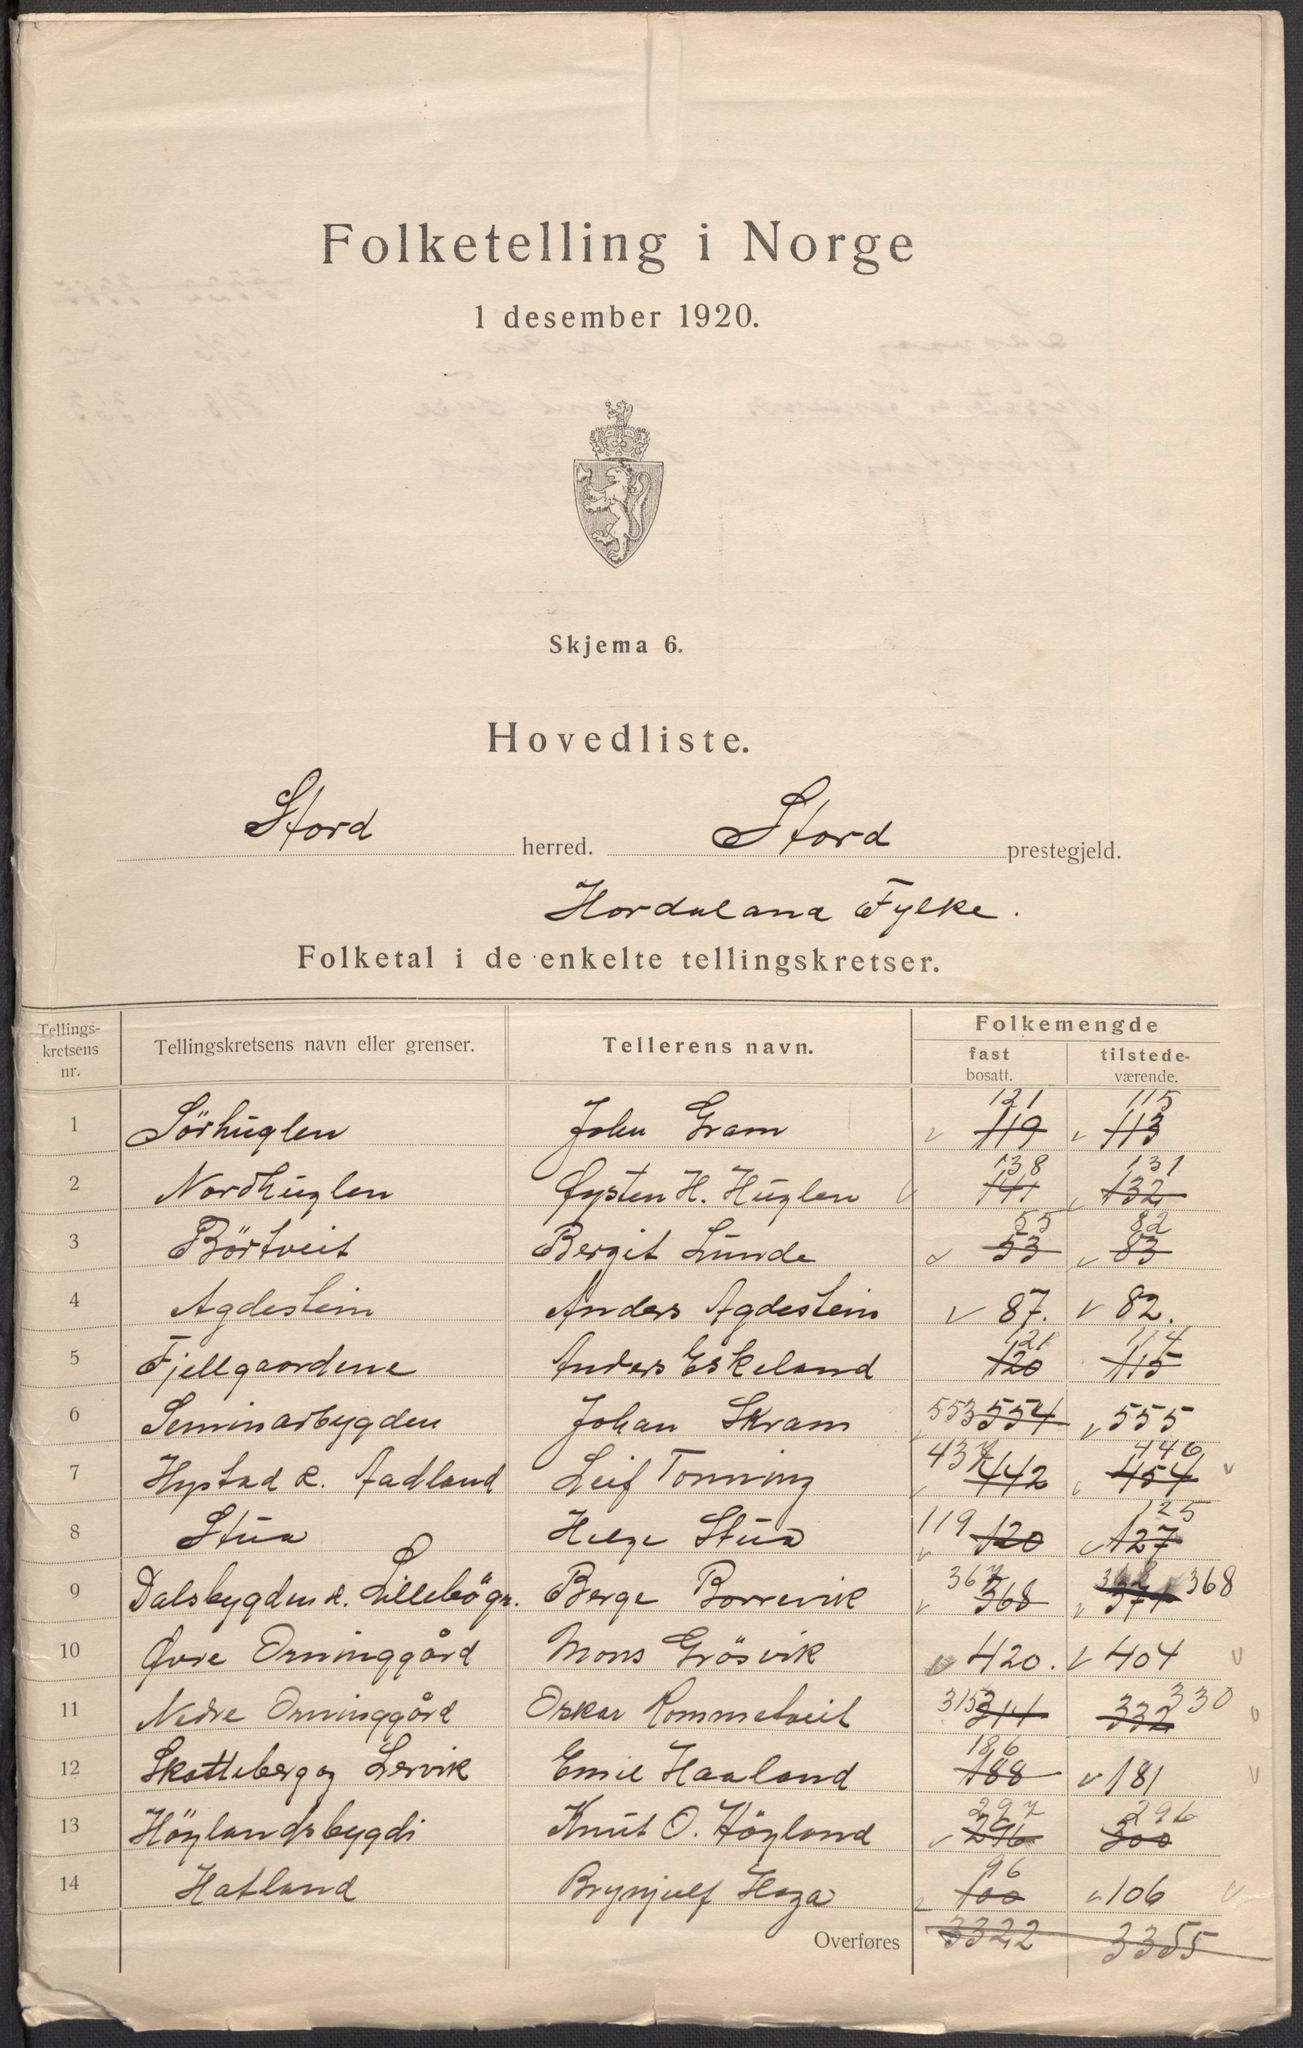 Folketelling i Norge
1 desember 1920.
Skjema 6.
Hovedliste.
Stord herred. Stord prestegjeld.
Hordaland Fylke.
Folketal i de enkelte tellingskretser.
Tellings-kretsens nr. Tellingskretsens navn eller grenser. Tellerens navn. Folkemengde
fast bosatt. tilstede-værende.
121 115
1 Sörhuglen John Gram 119 113
138 131
2 Nordhuglen Øysten H. Huglen 141 132
55 82
3 Börtveit Bergit Lunde 53 83
4 Agdestein Anders Agdestein 87. 82.
121 114
5 Fjellgaardene Anders Eskeland 120 115
6 Seminarbygden Johan Skram 553 554 555
437 446
7 Hystad &. Aadland Leif Tonning 442 454
119 125
8 Stua Helge Stua 120 127
367 368
9 Dalsbygden &. Lillebögn. Berge Borrevik 368 371 368
10 Øvre Orninggård Mons Grösvik 420. 404
11 Nedre Orninggård Oskar Rommetveit 315 314 332 330
186
12 Skotteberg og Lervik Emil Haaland 188 181
297 296
13 Höylandsbygdi Knut O. Höyland 296 300
96
14 Hatland Brynjulf Haga 100 106
Overføres 3322 3355